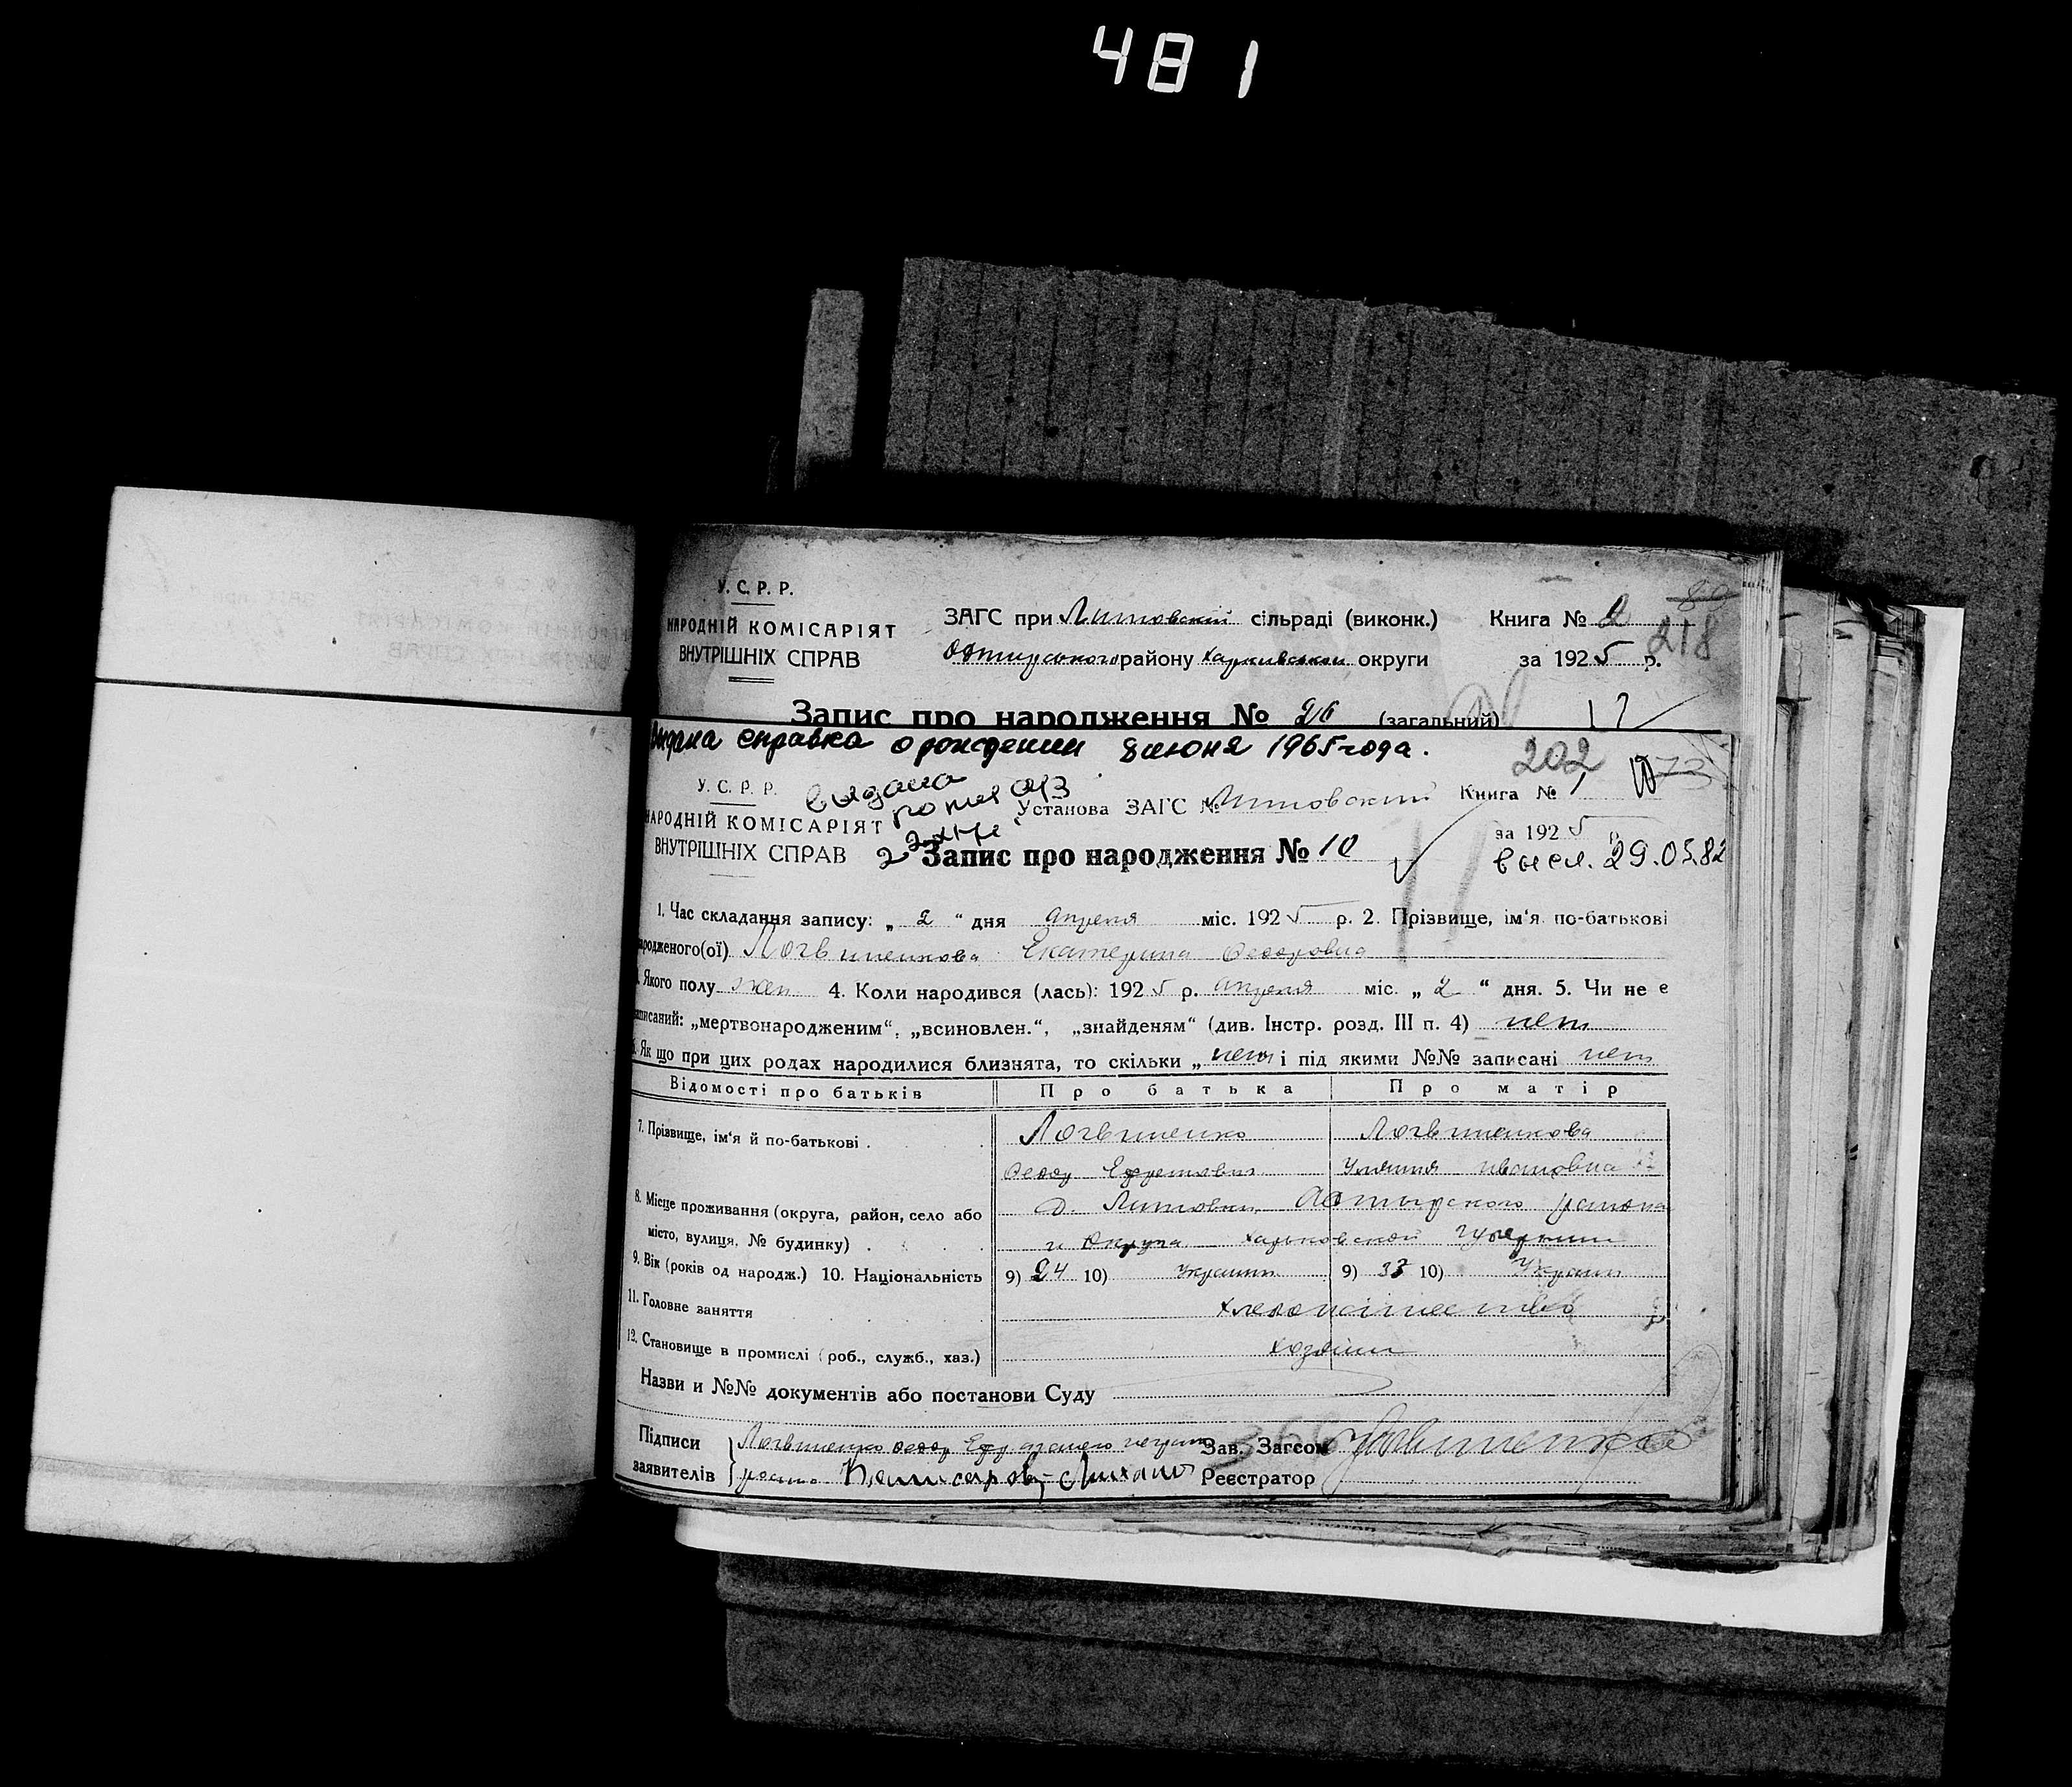 481
У. С. Р. Р.
НАРОДНІЙ КОМІСАРІЯТ
ВНУТРІШНІХ СПРАВ
ЗАГС при Литовскій сільраді (виконк.)
району Харкивськои округи
Книга № 2
за 1925 р.
80
218
Запис про народження № 26 (загальний)
17
Выдана справка о рождении 8 июня 1965 года.
202
73
У. С. Р. Р.
НАРОДНІЙ КОМІСАРІЯТ
ВНУТРІШНІХ СПРАВ
видана
Установа ЗАГС № Литовский
Книга № 1
за 1925 р.
высл. 29.05.82
Запис про народження № 10
1. Час складання запису: „ 2 “ дня апреля міс. 1925 р. 2. Прізвище, ім'я по-батькові
народженого(ої) Логвиненкова Екатерина Федоровна
Якого полу жен 4. Коли народився (лась): 1925 р. апреля міс. „ 2 “ дня. 5. Чи не е
записаний: „мертвонародженим“, „всиновлен.“, „знайденям“ (див. Інстр. розд. III п. 4) нет
6. Як що при цих родах народилися близнята, то скільки „ нет і під якими №№ записані нет
Відомості про батьків
Про батька
Про матір
7. Прізвище, ім'я й по-батькові
Логвиненко
Логвиненкова
Федор
Ивановна
8. Місце проживання (округа, район, село або
місто, вулиця, № будинку)
Литовки, Ахтырского района
и Округа Харьковской Губернии
9. Вік (років од народж.) 10. Національність
9) 24 10) Украин
9) 33 10) Украин
11. Головне заняття
12. Становище в промислі (роб., служб., хаз.)
хозяин
Назви и №№ документів або постанови Суду
Підписи
заявителів
Логвиненко Федор
Зав. Загсом
Реєстратор
366